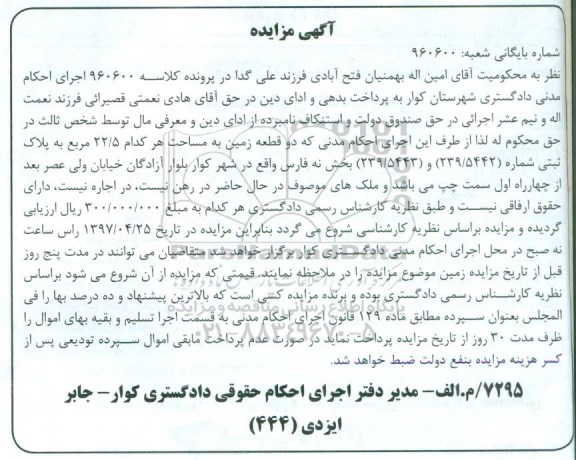 آگهی مزایده
شماره بایگانی شعبه: ۹۶۰۶۰۰
نظر به محکومیت آقای امین اله بهمنیان فتح آبادی فرزند علی گدا در پرونده کلاسه ۹۶۰۶۰۰ اجرای احکام
مدنی دادگستری شهرستان کوار به پرداخت بدهی و ادای دین در حق آقای هادی نعمتی قصیرائی فرزند نعمت
اله و نیم عشر اجرائی در حق صندوق دولت و استنکاف نامبرده از ادای دین و معرفی مال توسط شخص ثالث در
حق محکوم له لذا از طرف این اجرای احکام مدنی که دو قطعه زمین به مساحت هر کدام ۲۲/۵ مربع به پلاک
ثبتی شماره (۲۳۹/۵۴۴۲) و (۲۳۹/۵۴۴۳) بخش نه فارس واقع در شهر کوار بلوار آزادگان خیابان ولی عصر بعد
از چهارراه اول سمت چپ می باشد و ملک های موصوف در حال حاضر در رهن نیست، در اجاره نیست، دارای
حقوق ارفاقی نیست و طبق نظریه کارشناس رسمی دادگستری هر کدام به مبلغ ۳۰۰/۰۰۰/۰۰۰ ریال ارزیابی
گردیده و مزایده براساس نظریه کارشناسی شروع می گردد بنابراین مزایده در تاریخ ۱۳۹۷/۰۴/۲۵ راس ساعت
نه صبح در محل اجرای احکام مدنی دادگستری کوار برگزار خواهد شد متقاضیان می توانند در مدت پنج روز
قبل از تاریخ مزایده زمین موضوع مزایده را در ملاحظه نمایند. قیمتی که مزایده از آن شروع می شود براساس
نظریه کارشناس رسمی دادگستری بوده و برنده مزایده کسی است که بالاترین پیشنهاد و ده درصد بها را فی
المجلس بعنوان سپرده مطابق ماده ۱۲۹ قانون اجرای احکام مدنی به قسمت اجرا تسلیم و بقیه بهای اموال را
ظرف مدت ۳۰ روز از تاریخ مزایده پرداخت نماید در صورت عدم پرداخت مابقی اموال سپرده تودیعی پس از
کسر هزینه مزایده بنفع دولت ضبط خواهد شد.
۷۲۹۵/م.الف- مدیر دفتر اجرای احکام حقوقی دادگستری کوار- جابر
ایزدی (۴۴۴)
۰۲۱-۸۸۳۴۹۶۷۰-۵